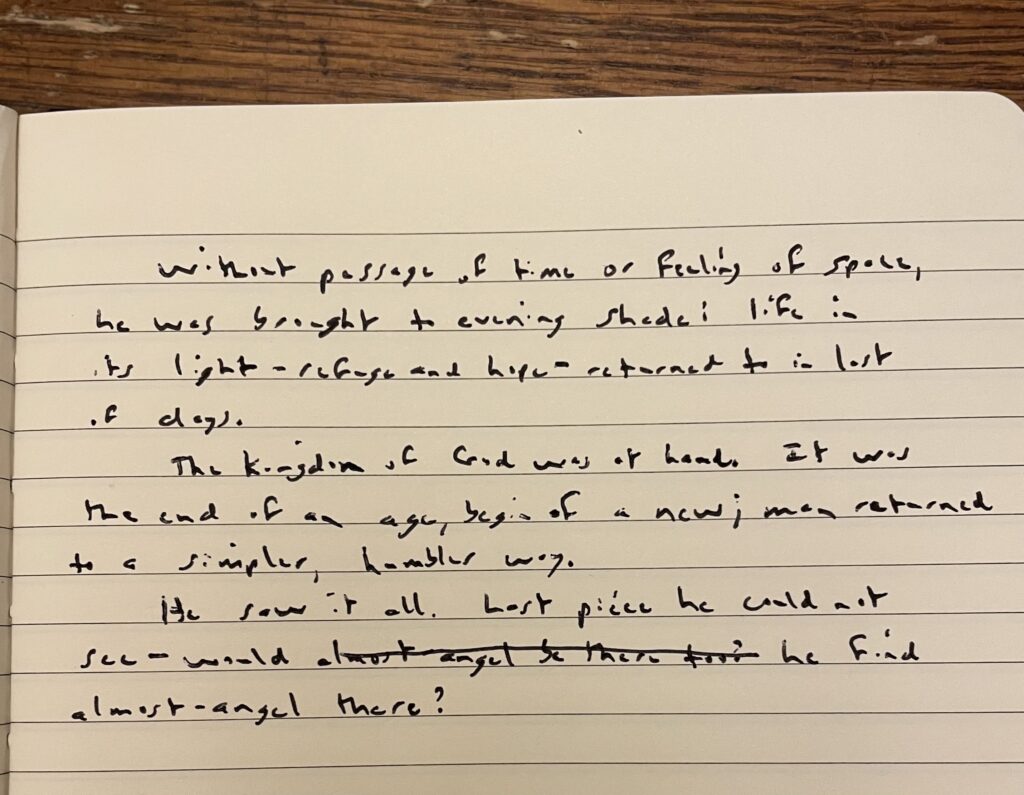 Without passage of time or feeling of space,
he was brought to evening shade: life in
its light - refuge and hope - returned to in last
of days.
The Kingdom of God was at hand. It was
the end of an age, begin of a new; man returned
to a simpler, humbler way.
He saw it all. Last piece he could not
see - would almost angel be there too? he find
almost-angel there?